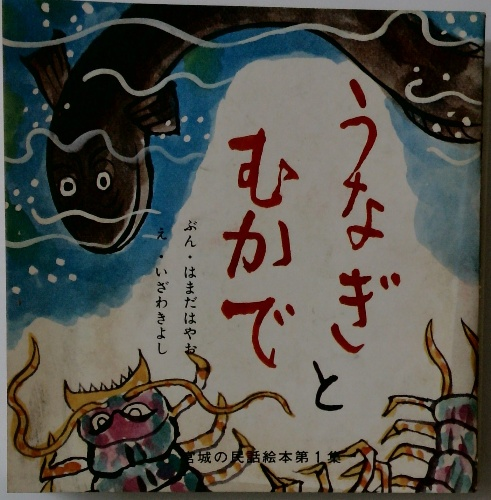 うなぎと
むかで
ぶん・はまだはやお
え・いざわきよし
宮城の民話絵本第1集